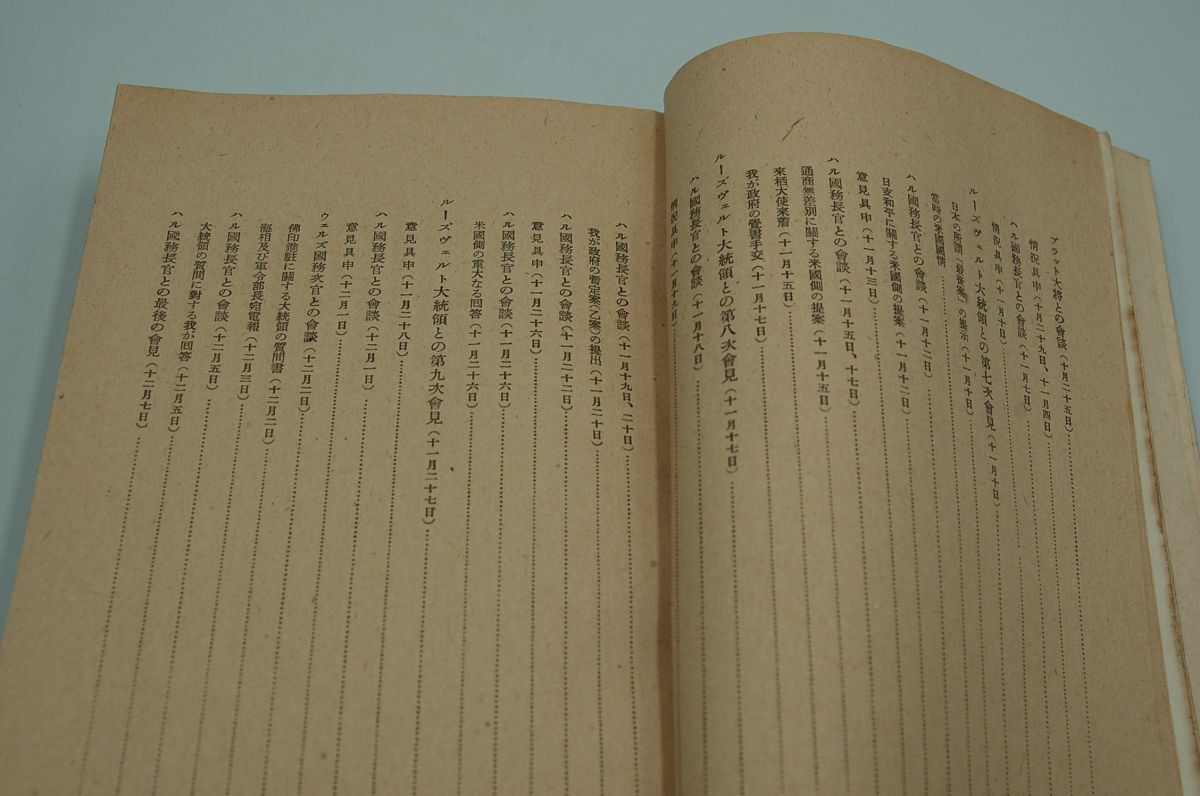 プラット大將との會談（十月二十五日）
情況具申（十月二十九日、十一月四日）
ハル國務長官との會談（十一月七日）
情況具申（十一月十日）
ルーズヴェルト大統領との第七次會見（十一月十日）
日本の所謂「最後案」の提示（十一月十日）
當時の米國國情
ハル國務長官との會談（十一月十二日）
日支和平に關する米國側の提案（十一月十二日）
意見具申（十一月十三日）
ハル國務長官との會談（十一月十五日、十七日）
通商無差別に關する米國側の提案（十一月十五日）
來栖大使來着（十一月十五日）
我が政府の覺書手交（十一月十七日）
ルーズヴェルト大統領との第八次會見（十一月十七日）
ハル國務長官との會談（十一月十八日）
情況具申（十一月十九日）
ハル國務長官との會談（十一月十九日、二十日）
我が政府の暫定案（乙案）の提出（十一月二十日）
ハル國務長官との會談（十一月二十二日）
意見具申（十一月二十六日）
ハル國務長官との會談（十一月二十六日）
米國側の重大なる回答（十一月二十六日）
ルーズヴェルト大統領との第九次會見（十一月二十七日）
意見具申（十一月二十八日）
ハル國務長官との會談（十二月一日）
意見具申（十二月一日）
ウェルズ國務次官との會談（十二月二日）
佛印進駐に關する大統領の質問書（十二月二日）
海相及び軍令部長宛電報（十二月三日）
ハル國務長官との會談（十二月五日）
大統領の質問に對する我が回答（十二月五日）
ハル國務長官との最後の會見（十二月七日）